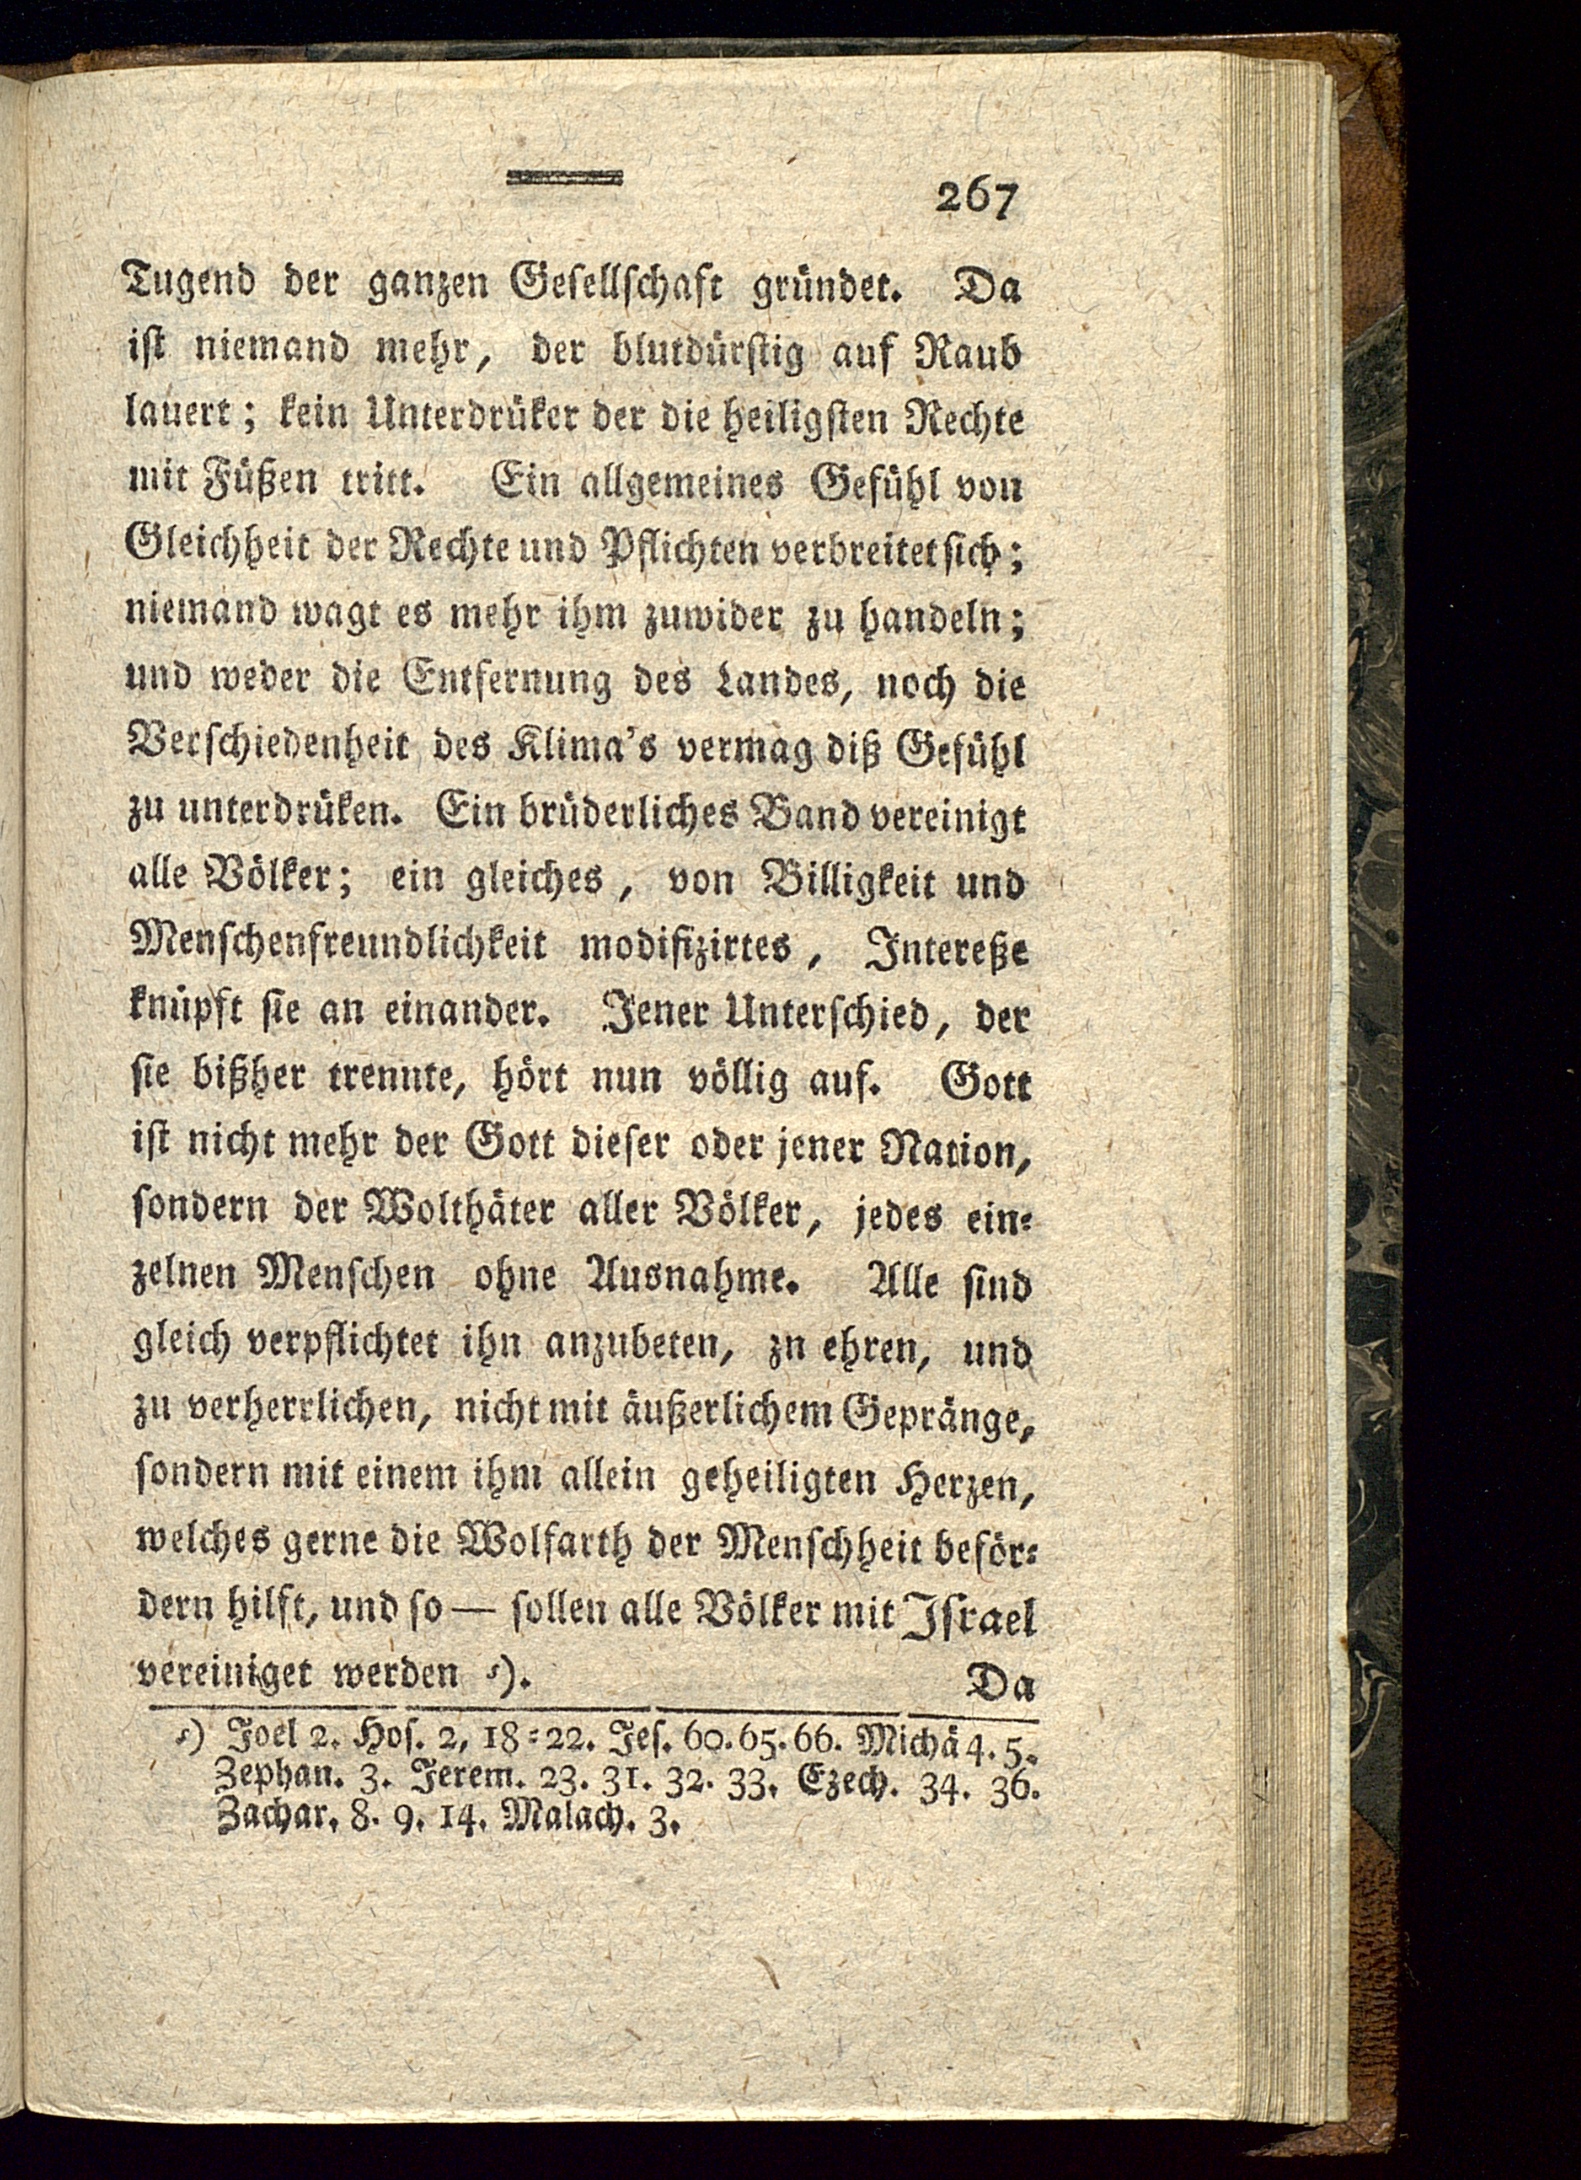 267
Tugend der ganzen Geſellſchaft gründet. Da
iſt niemand mehr, der blutdürſtig auf Raub
lauert; kein Unterdrüker der die heiligſten Rechte
mit Füßen tritt. Ein allgemeines Gefühl von
Gleichheit der Rechte und Pflichten verbreitet ſich;
niemand wagt es mehr ihm zuwider zu handeln;
und weder die Entfernung des Landes, noch die
Verſchiedenheit des Klima's vermag diß Gefühl
zu unterdrüken. Ein brüderliches Band vereinigt
alle Völker; ein gleiches, von Billigkeit und
Menſchenfreundlichkeit modifizirtes, Intereße
knüpft ſie an einander. Jener Unterſchied, der
ſie bißher trennte, hört nun völlig auf. Gott
iſt nicht mehr der Gott dieſer oder jener Nation,
ſondern der Wolthäter aller Völker, jedes ein⸗
zelnen Menſchen ohne Ausnahme. Alle ſind
gleich verpflichtet ihn anzubeten, zn ehren, und
zu verherrlichen, nicht mit äußerlichem Gepränge,
ſondern mit einem ihm allein geheiligten Herzen,
welches gerne die Wolfarth der Menſchheit beför⸗
dern hilft, und ſo — ſollen alle Völker mit Iſrael
vereiniget werden s).
Da
s) Joel 2. Hoſ. 2, 18⸗22. Jeſ. 60. 65. 66. Michä 4. 5.
Zephan. 3. Jerem. 23. 31. 32. 33. Ezech. 34. 36.
Zachar. 8. 9. 14. Malach. 3.